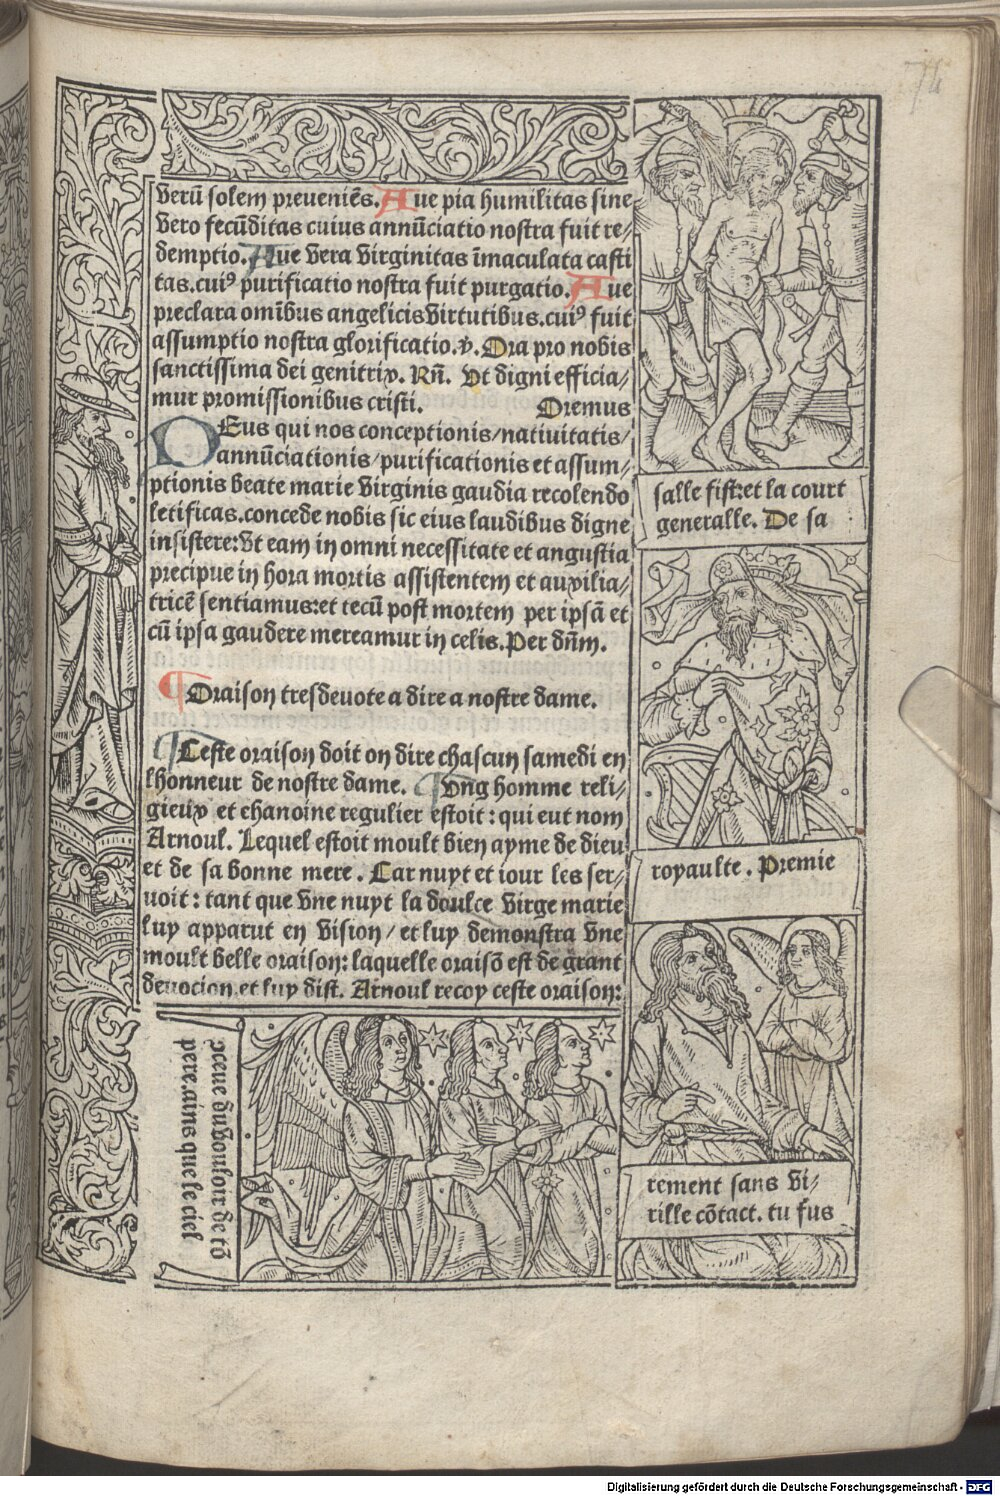 74
verū solem preueniēs. Aue pia humilitas sine
vero fecūditas cuius annūciatio nostra fuit re/
demptio. Aue vera virginitas īmaculata casti
tas. cuiꝰ purificatio nostra fuit purgatio. Aue
preclara omībus angelicis virtutibus. cuiꝰ fuit
assumptio nostra glorificatio. ꝟ. Ora pro nobis
sanctissima dei genitrix. Rñ. Vt digni efficia/
mur promissionibus cristi. Oremus
DEus qui nos conceptionis/natiuitatis/
annūciationis/purificationis et assum/
ptionis beate marie virginis gaudia recolendo
letificas. concede nobis sic eius laudibus digne
insistere: vt eam in omni necessitate et angustia
precipue in hora mortis assistentem et auxilia/
tricē sentiamus: et tecū post mortem per ipsā et
cū ipsa gaudere mereamur in celis. Per dñm.
¶ Oraison tresdeuote a dire a nostre dame.
¶ Ceste oraison doit on dire chascun samedi en
lhonneur de nostre dame. ¶ Vng homme reli/
gieux et chanoine regulier estoit: qui eut nom
Arnoul. Lequel estoit moult bien ayme de dieu
et de sa bonne mere. Car nuyt et iour les ser/
uoit: tant que vne nuyt la doulce virge marie
luy apparut en vision/ et luy demonstra vne
moult belle oraison: laquelle oraisō est de grant
deuocion. et luy dist. Arnoul recoy ceste oraison:
salle fist: et la court
generalle. De sa
royaulte. Premie
rement sans vi/
rille cōtact. tu fus
pere. ains que le ciel